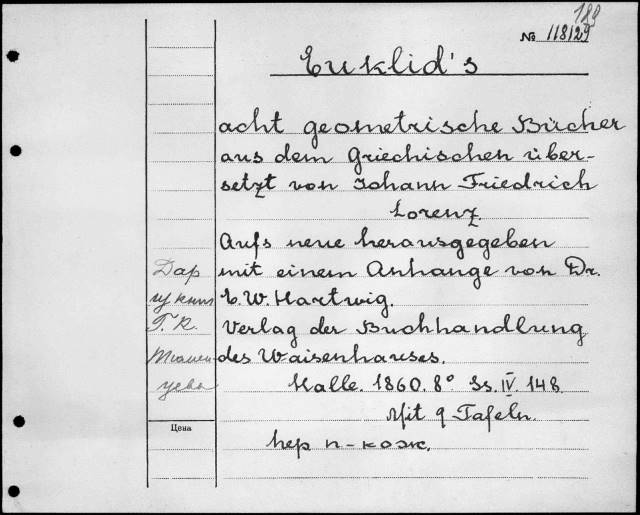 189
№ 118129
Euklid's
acht geometrische Bücher
aus dem Griechischen über-
setzt von Johann Friedrich
Lorenz.
Aufs neue herausgegeben
mit einem Anhange von Dr.
E. W. Hartwig.
Verlag der Buchhandlung
des Waisenhauses.
Halle. 1860. 8° Ss. IV. 148.
Mit 9 Tafeln.
пер п-кож.
Дар
Г. К.
Цена